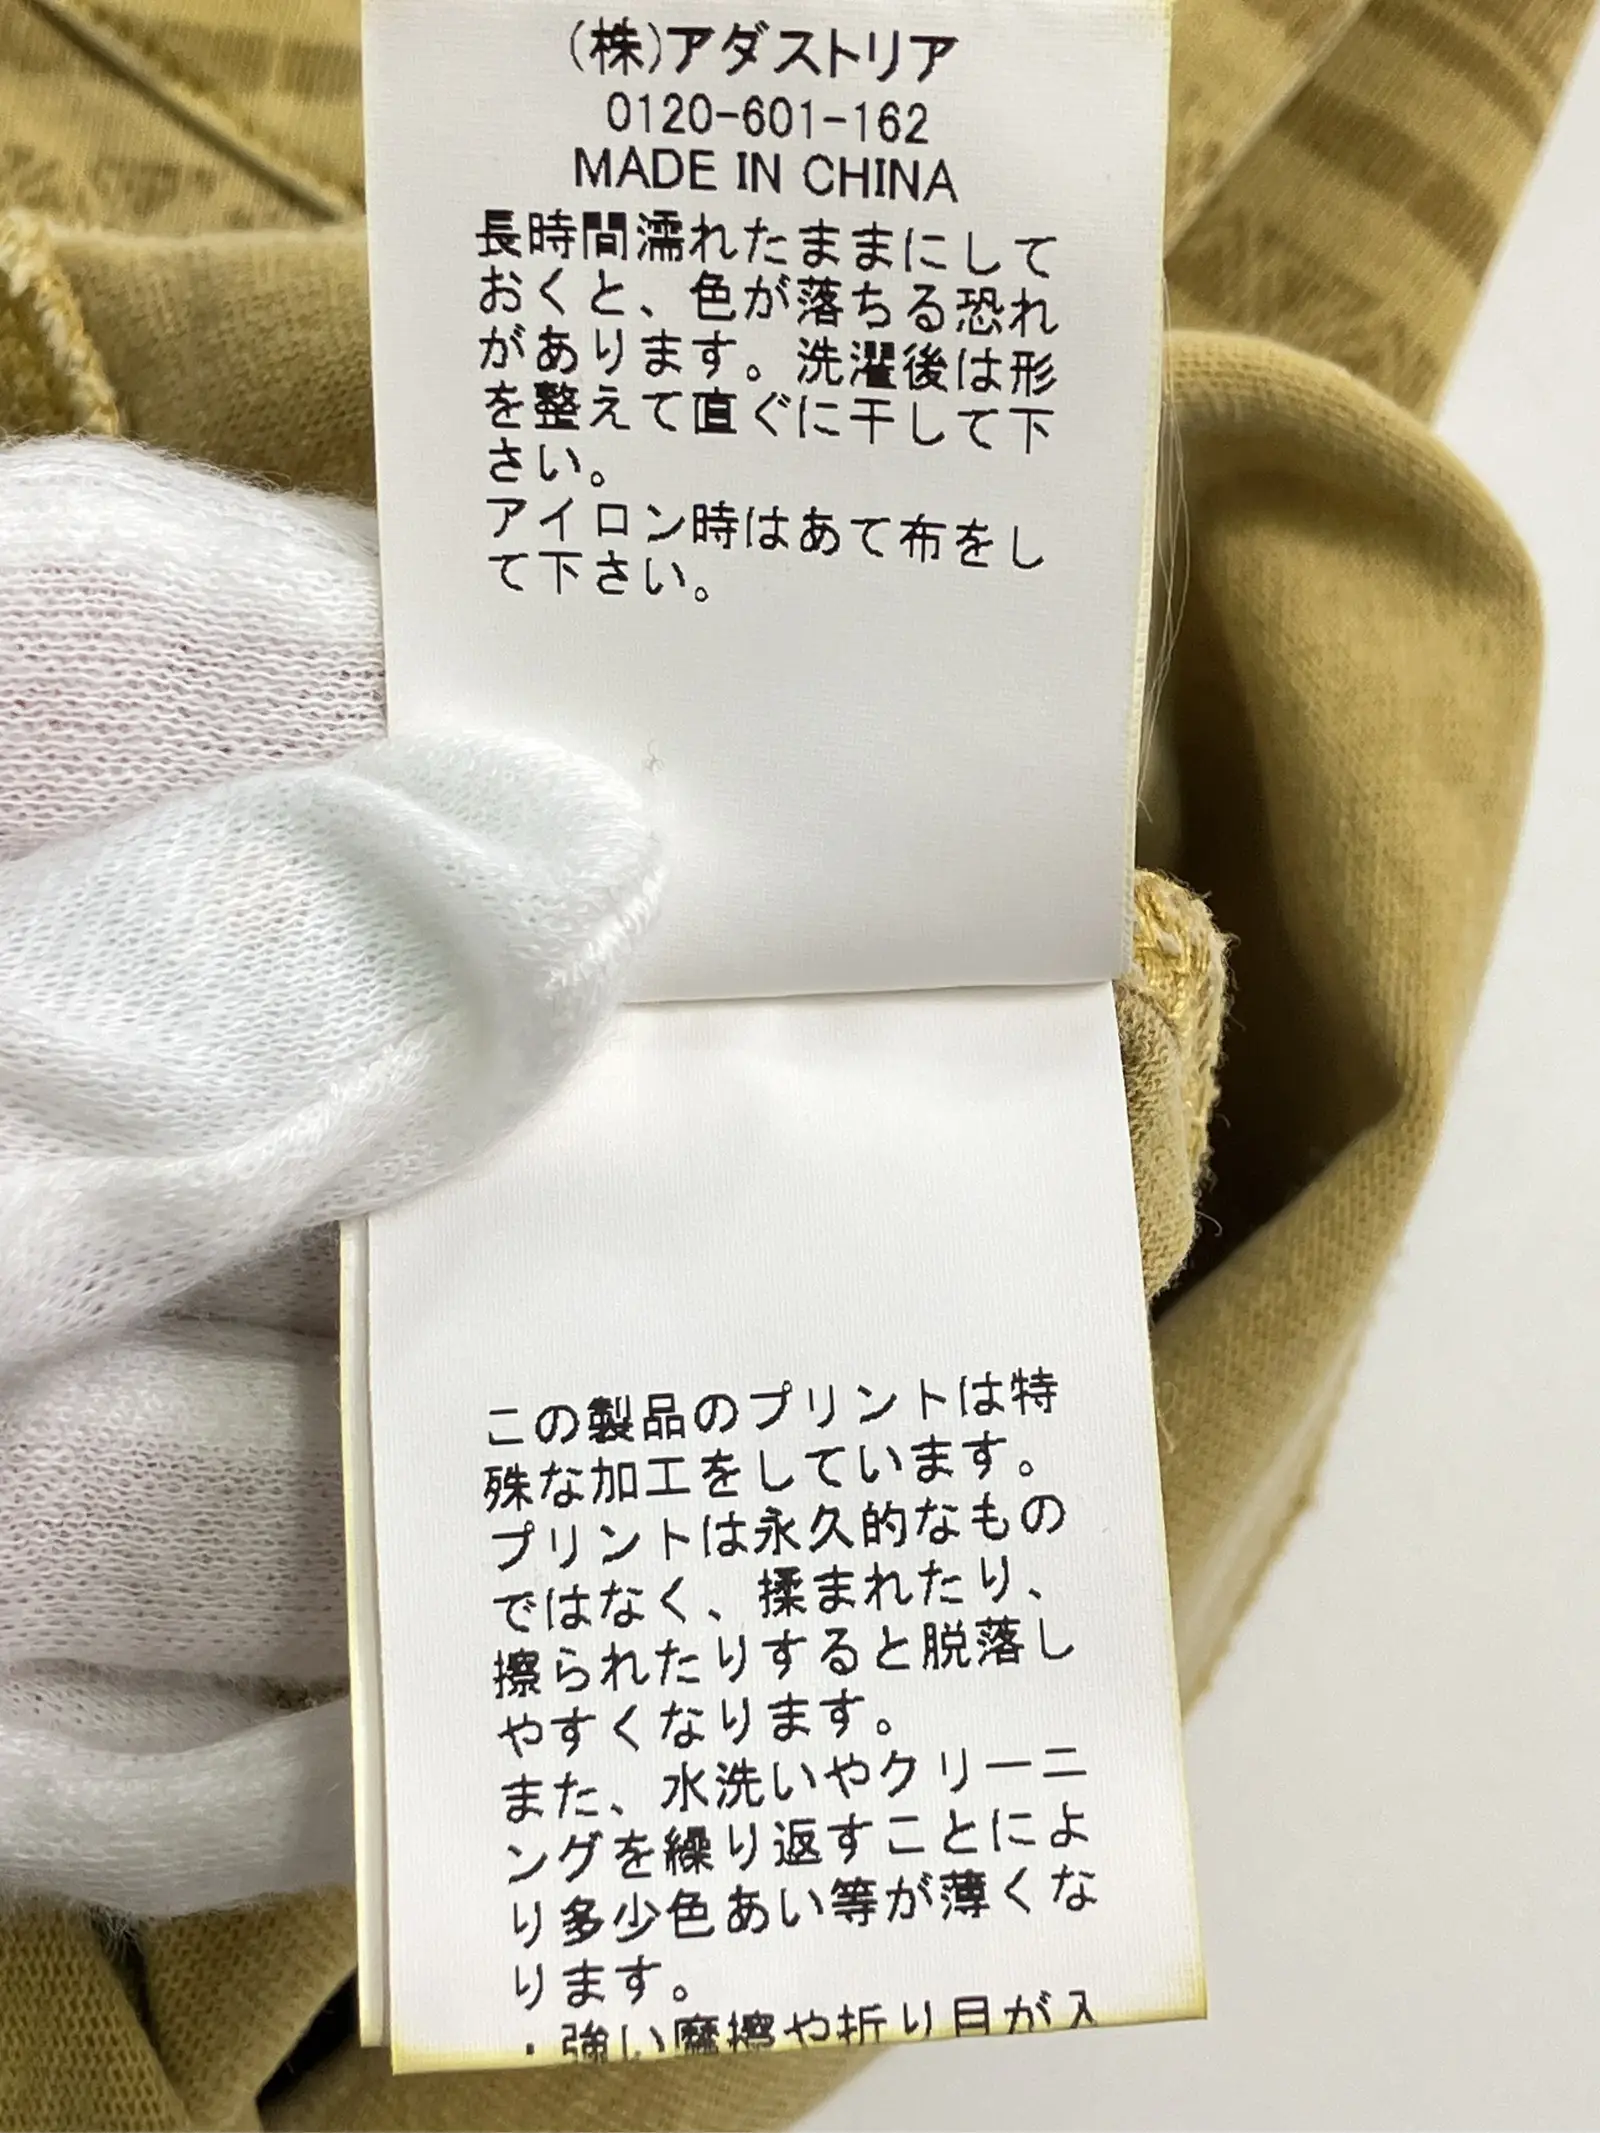 (株)アダストリア
0120-601-162
MADE IN CHINA
長時間濡れたままにして
おくと、色が落ちる恐れ
があります。洗濯後は形
を整えて直ぐに干して下
さい。
アイロン時はあて布をし
て下さい。
この製品のプリントは特
殊な加工をしています。
プリントは永久的なもの
ではなく、揉まれたり、
擦られたりすると脱落し
やすくなります。
また、水洗いやクリーニ
ングを繰り返すことによ
り多少色あい等が薄くな
ります。
・強い摩擦や折り目が入